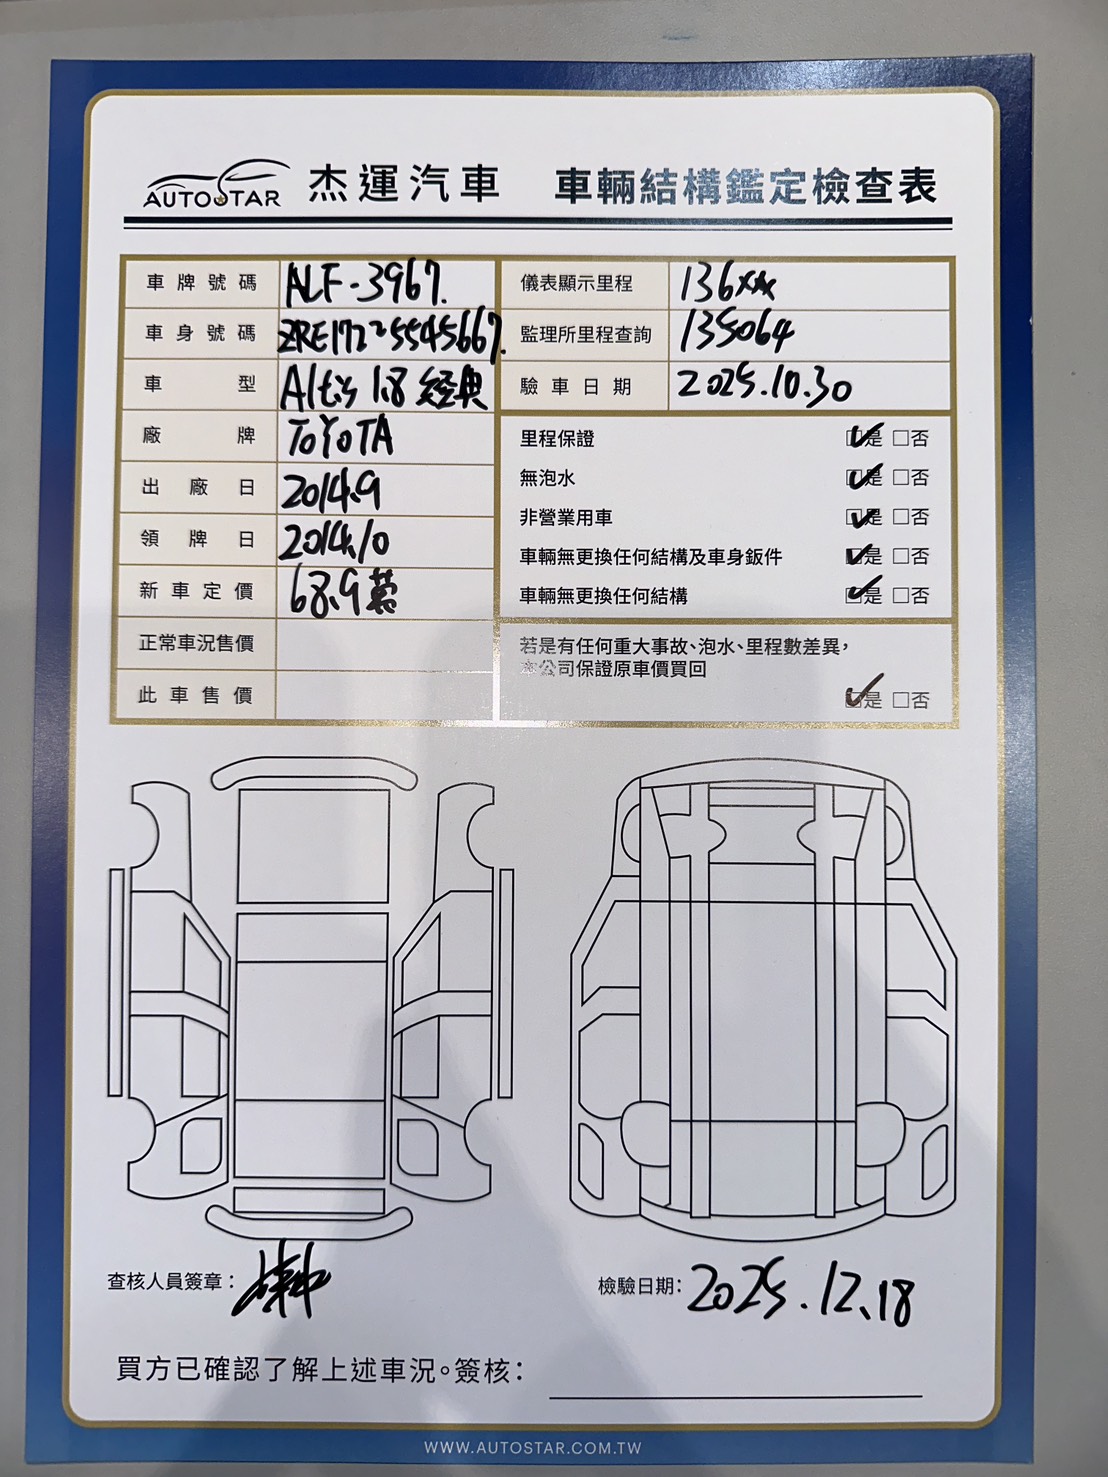 AUTOSTAR 杰運汽車 車輛結構鑑定檢查表
車牌號碼 ALF-3967. 儀表顯示里程 136xxx
車身號碼 ZRE17225545667. 監理所里程查詢 135064
車型 Altis 1.8 經典 驗車日期 2025.10.30
廠牌 TOYOTA 里程保證 ☑是 □否
出廠日 2014.9 無泡水 ☑是 □否
領牌日 2014.10 非營業用車 ☑是 □否
新車定價 68.9萬 車輛無更換任何結構及車身鈑件 ☑是 □否
車輛無更換任何結構 ☑是 □否
正常車況售價 若是有任何重大事故、泡水、里程數差異,
本公司保證原車價買回
此車售價 ☑是 □否
查核人員簽章: 檢驗日期: 2025.12.18
買方已確認了解上述車況。簽核:
WWW.AUTOSTAR.COM.TW